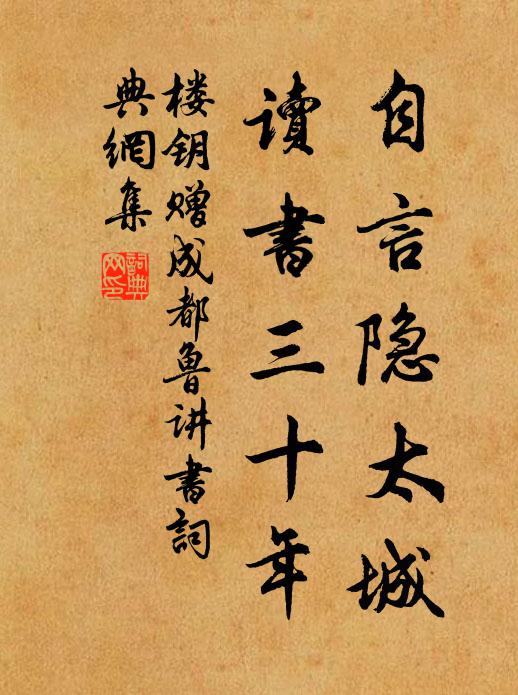 自言隐太城
讀書三十年
楼钥赠成都鲁讲書詞
典網集
詞典網印